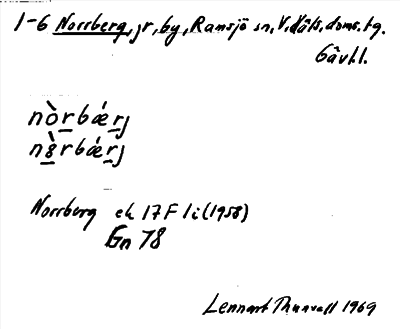 1-6 Norrberg, jr, by, Ramsjö sn, V. Häls. doms. tg.
Gävl.l.
nòrbǽrj
nò̱rbǽrj
Norrberg ek 17 F 1 i (1958)
Gn 78
Lennart Thunvall 1969